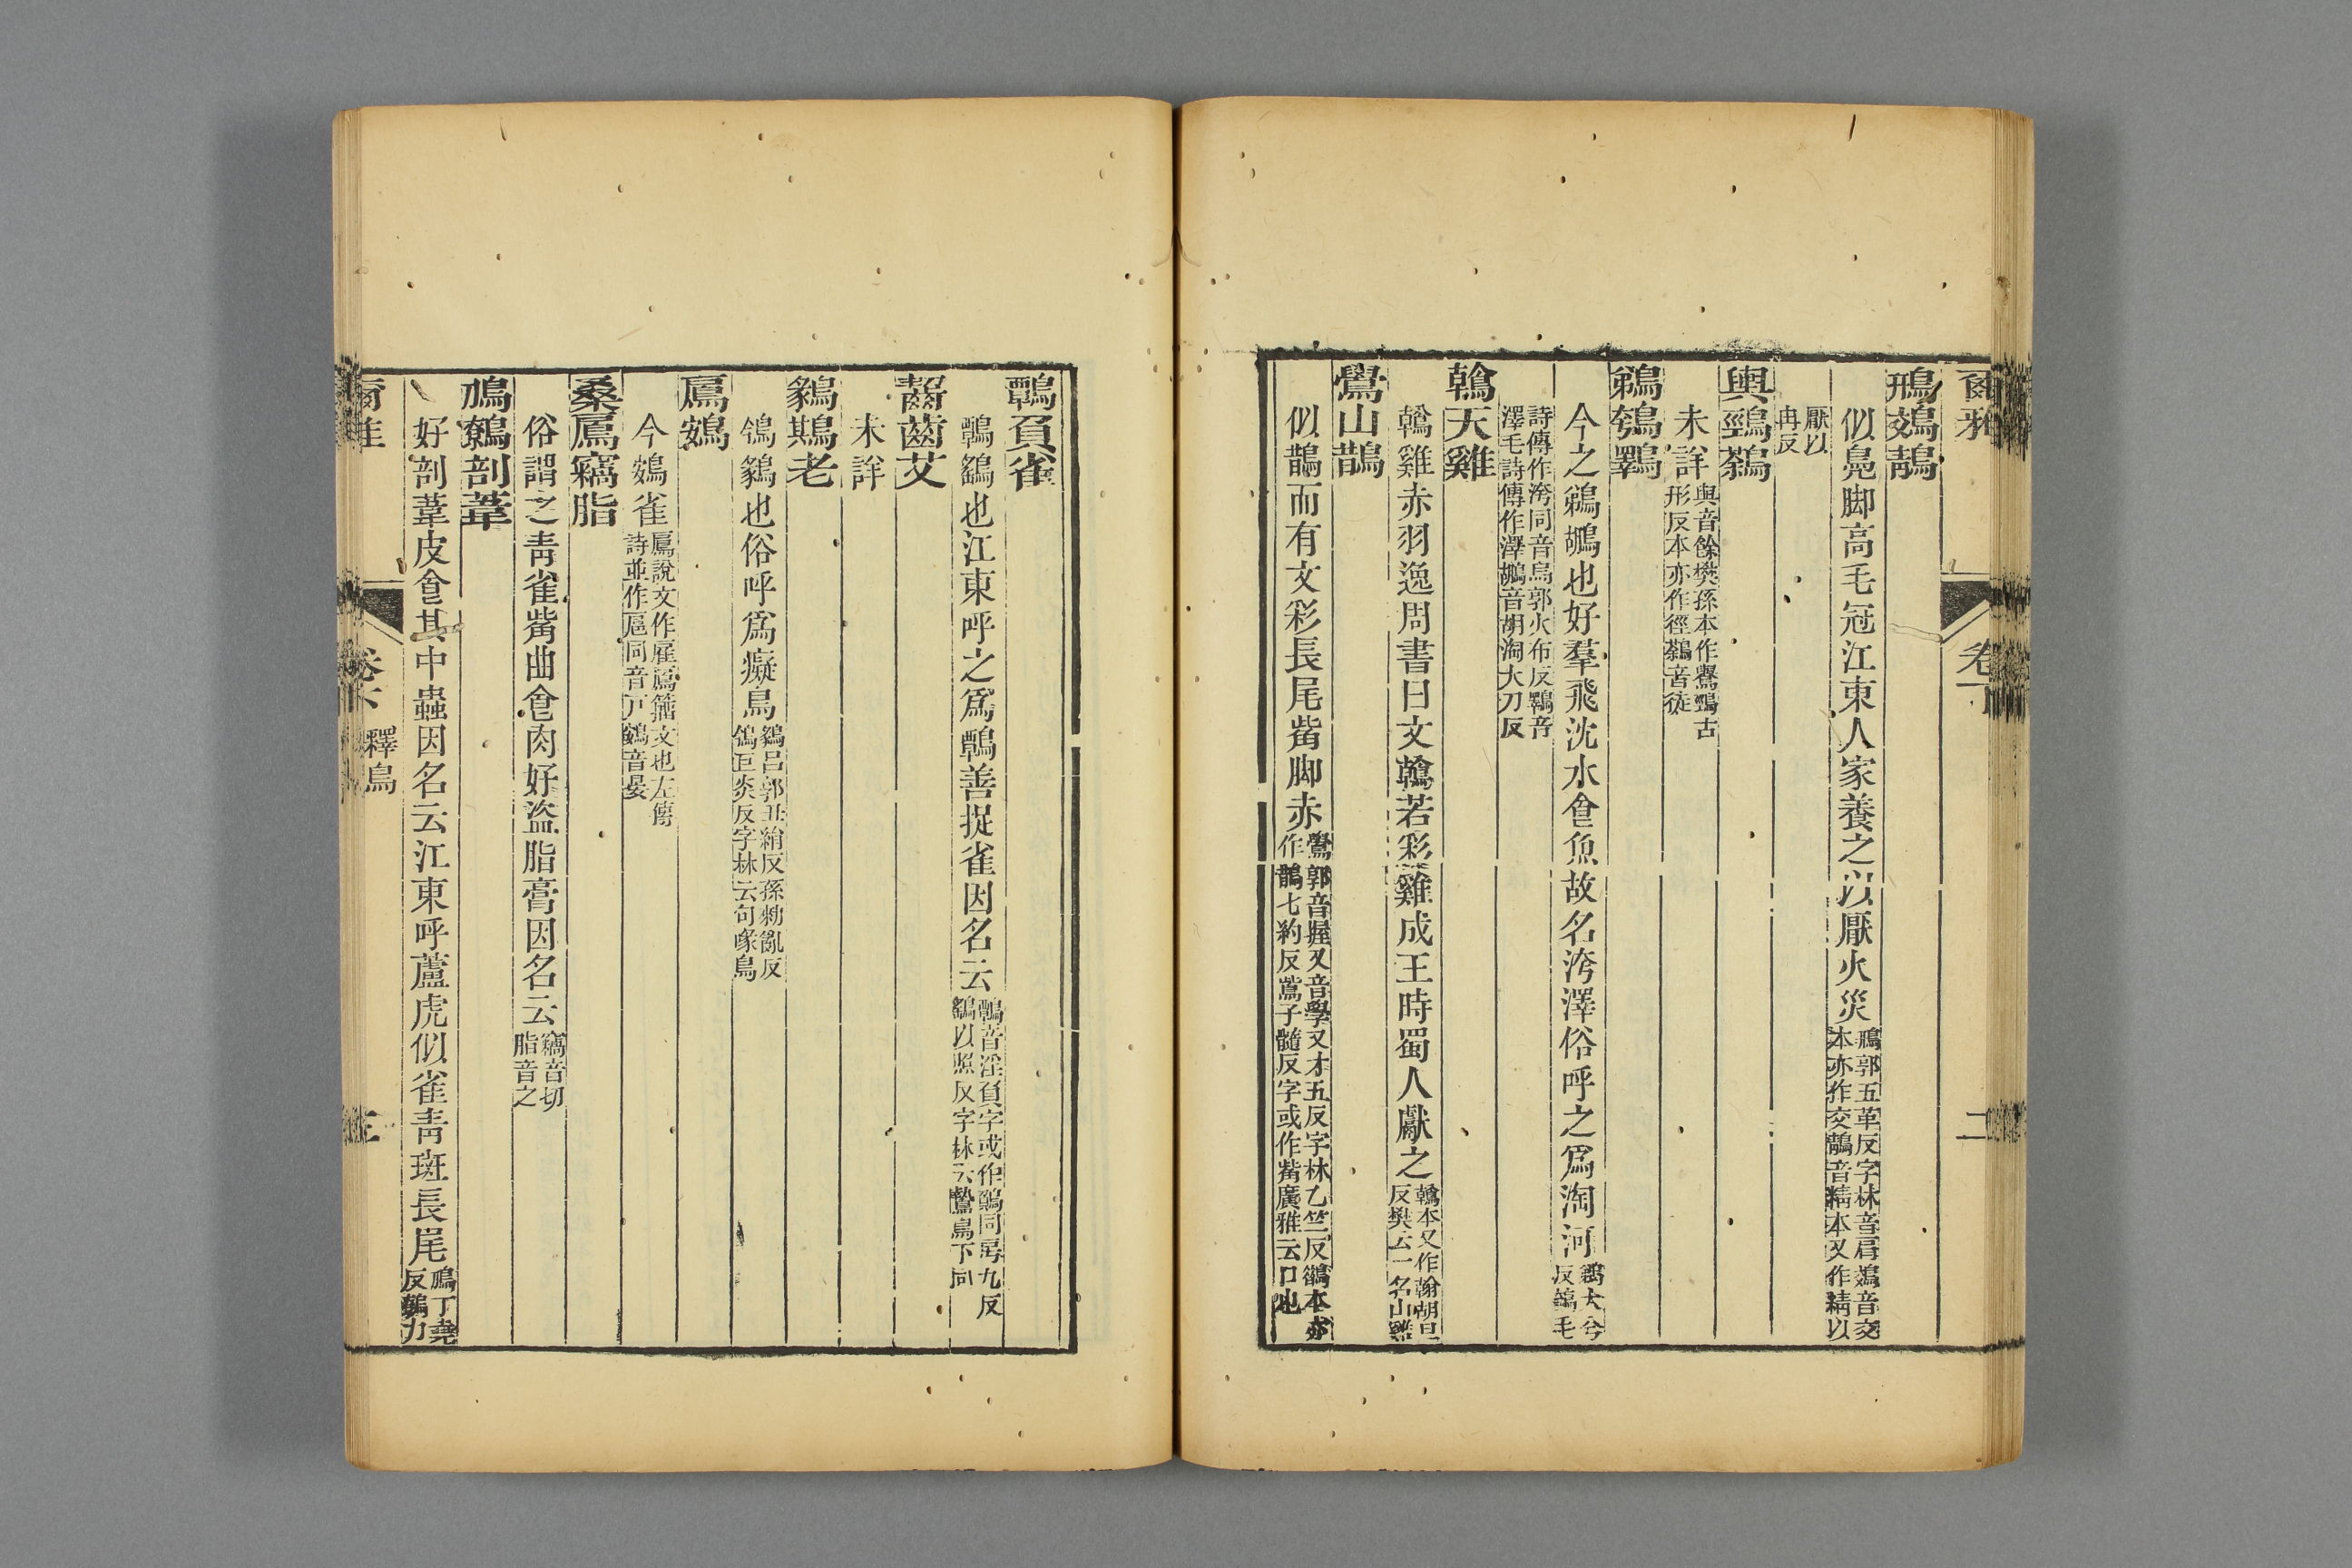 爾雅 卷下 二
鳽鵁鶄
似鳧脚高毛冠江東人家養之以厭火災鳽郭五革反字林音肩鵁音交
本亦作交鶄音精本又作精以
厭以
冉反
輿鵛鷋
未詳與音餘樊孫本作鸒鵛古
形反本亦作徑鷋音徒
鵜鴮鸅
今之鵜鶘也好羣飛沈水食魚故名洿澤俗呼之爲淘河鵜大兮
反鴮毛
詩傳作洿同音烏郭火布反鸅音
澤毛詩傳作澤鶘音胡淘大刀反
鶾天雞
鶾雞赤羽逸周書曰文鶾若彩雞成王時蜀人獻之鶾本又作翰胡旦
反樊云一名山雞
鷽山鵲
似鵲而有文彩長尾觜脚赤鷽郭音握又音學又才五反字林乙竺反鵲本亦
作䧿七豹反觜子髓反字或作觜廣雅云口也
鷣負雀
鷣鷂也江東呼之爲鷣善捉雀因名云鷣音淫負字或作鴟同房九反
鷂以照反字林云鷙鳥下同
齧齒艾
未詳
鶨鵙老
鳹鶨也俗呼爲癡鳥鶨呂郭丑絹反孫勑亂反
鳹巨炎反字林云句喙鳥
鳸鴳
今鴳雀鳸說文作雇鳸籀文也左傳
詩並作扈同音户鴳音晏
桑鳸竊脂
俗謂之青雀觜曲食肉好盜脂膏因名云竊音切
脂音之
鳭鷯剖葦
好剖葦皮食其中蟲因名云江東呼蘆虎似雀青斑長尾鳭丁堯
反鷯力
爾雅 卷下 釋鳥